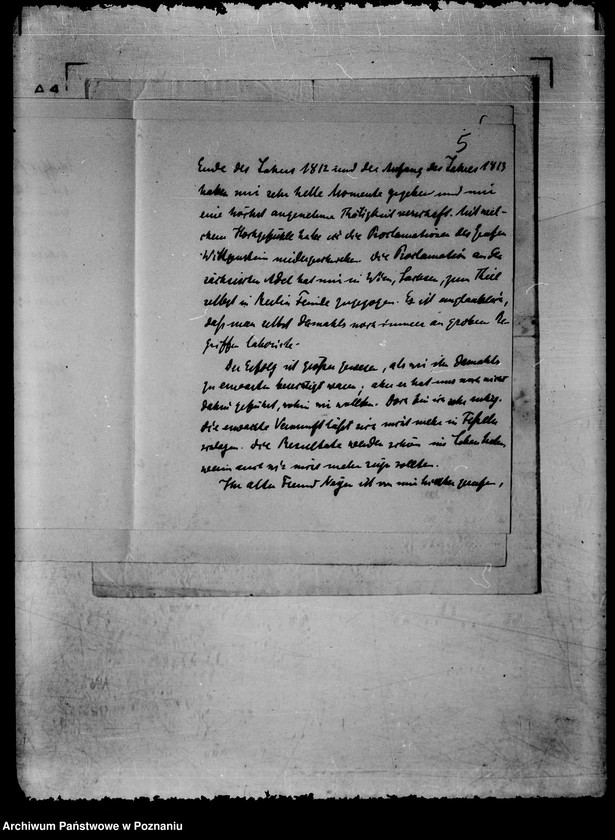 5
Ende des Jahres 1812 und der Anfang des Jahres 1813
haben mir sehr helle Momente gegeben und mir
eine höchst angenehme Thätigkeit verschaft. Mit wel-
chem Hochgefühle habe ich die Proclamationen des Grafen
Wittgenstein niedergeschrieben. Die Proclamation an den
sächsischen Adel hat mir in Wien, Sachsen, zum Theil
selbst in Berlin Feinde zugezogen. Es ist unglaublich,
daß man selbst damahls noch immer an groben Be-
griffen laborirte.
Der Erfolg ist größer gewesen, als wir ihn damahls
zu erwarten berechtigt waren; aber er hat uns noch nicht
dahin geführt, wohin wir wollten. Doch bin ich sehr ruhig.
Die erwachte Vernunft läßt sich nicht mehr in Fesseln
schlagen. Die Resultate werden schon ins Leben treten,
wenn auch wir nicht mehr sollten.
Ihr alter Freund ist von mir
Archiwum Państwowe w Poznaniu